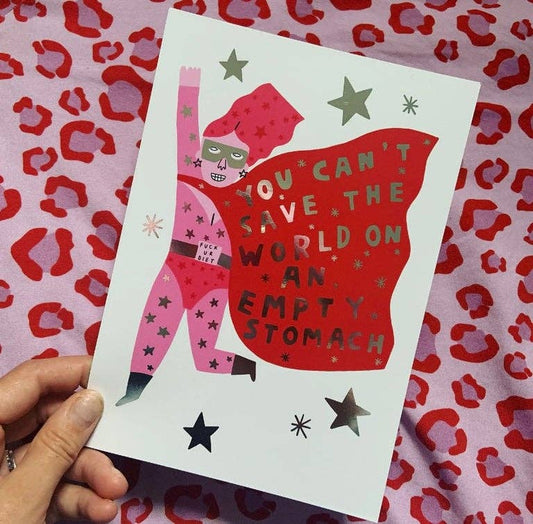 YOU CAN'T
SAVE THE
WORLD ON
AN
EMPTY
STOMACH
FUCK
UR
DIET